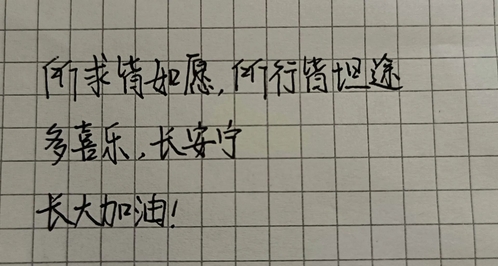 所求皆如愿,所行皆坦途
多喜乐,长安宁
长大加油!